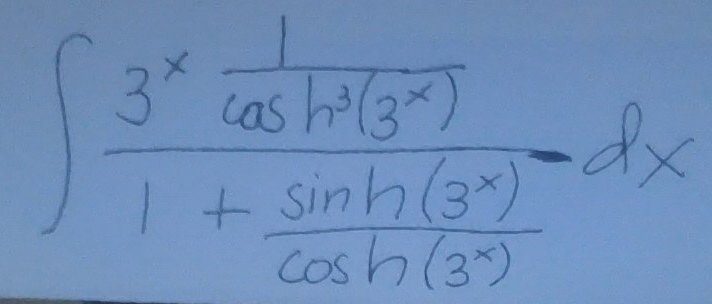 ∫ (3^x 1/cosh³(3^x)) / (1 + sinh(3^x)/cosh(3^x)) dx